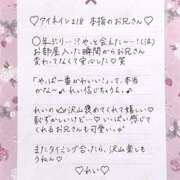 ♡アイネイン218 本指のお兄さん♡
◯年ぶり…!やっと会えた〜!(泣)
お部屋入った瞬間からお兄さん
変わってなくて安心した笑
「やっぱ一番かわいい!」って、本当
かな〜♪ れい信じちゃうよ♪
れいの 沢山褒めてくれて嬉しい♡
恥ずかしいけど…♡いっぱい感じて
くれるお兄さんも可愛い♡
またタイミング合ったら、沢山楽しも
うねん♡
♡れい♡